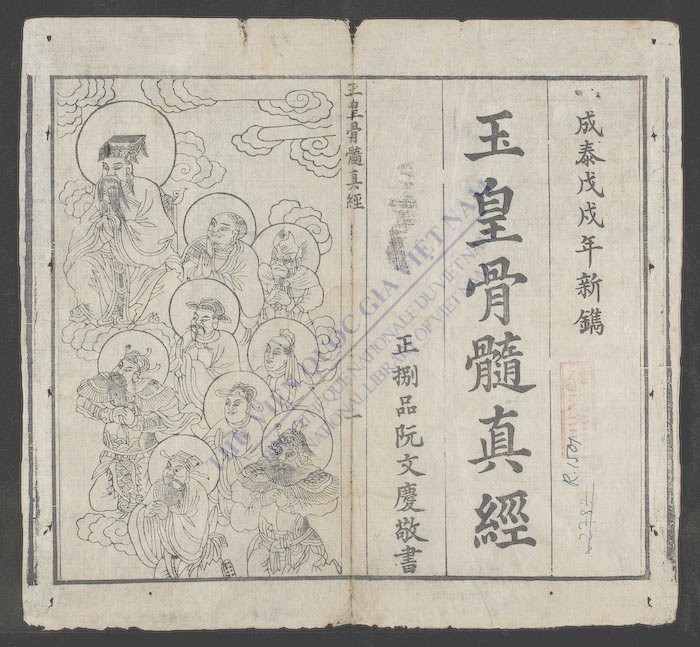 成泰戊戌年新鐫
玉皇骨髓真經
正捌品阮文慶敬書
玉皇骨髓真經
一
THƯ VIỆN QUỐC GIA VIỆT NAM
BIBLIOTHÈQUE NATIONALE DU VIETNAM
NATIONAL LIBRARY OF VIETNAM
R.1509